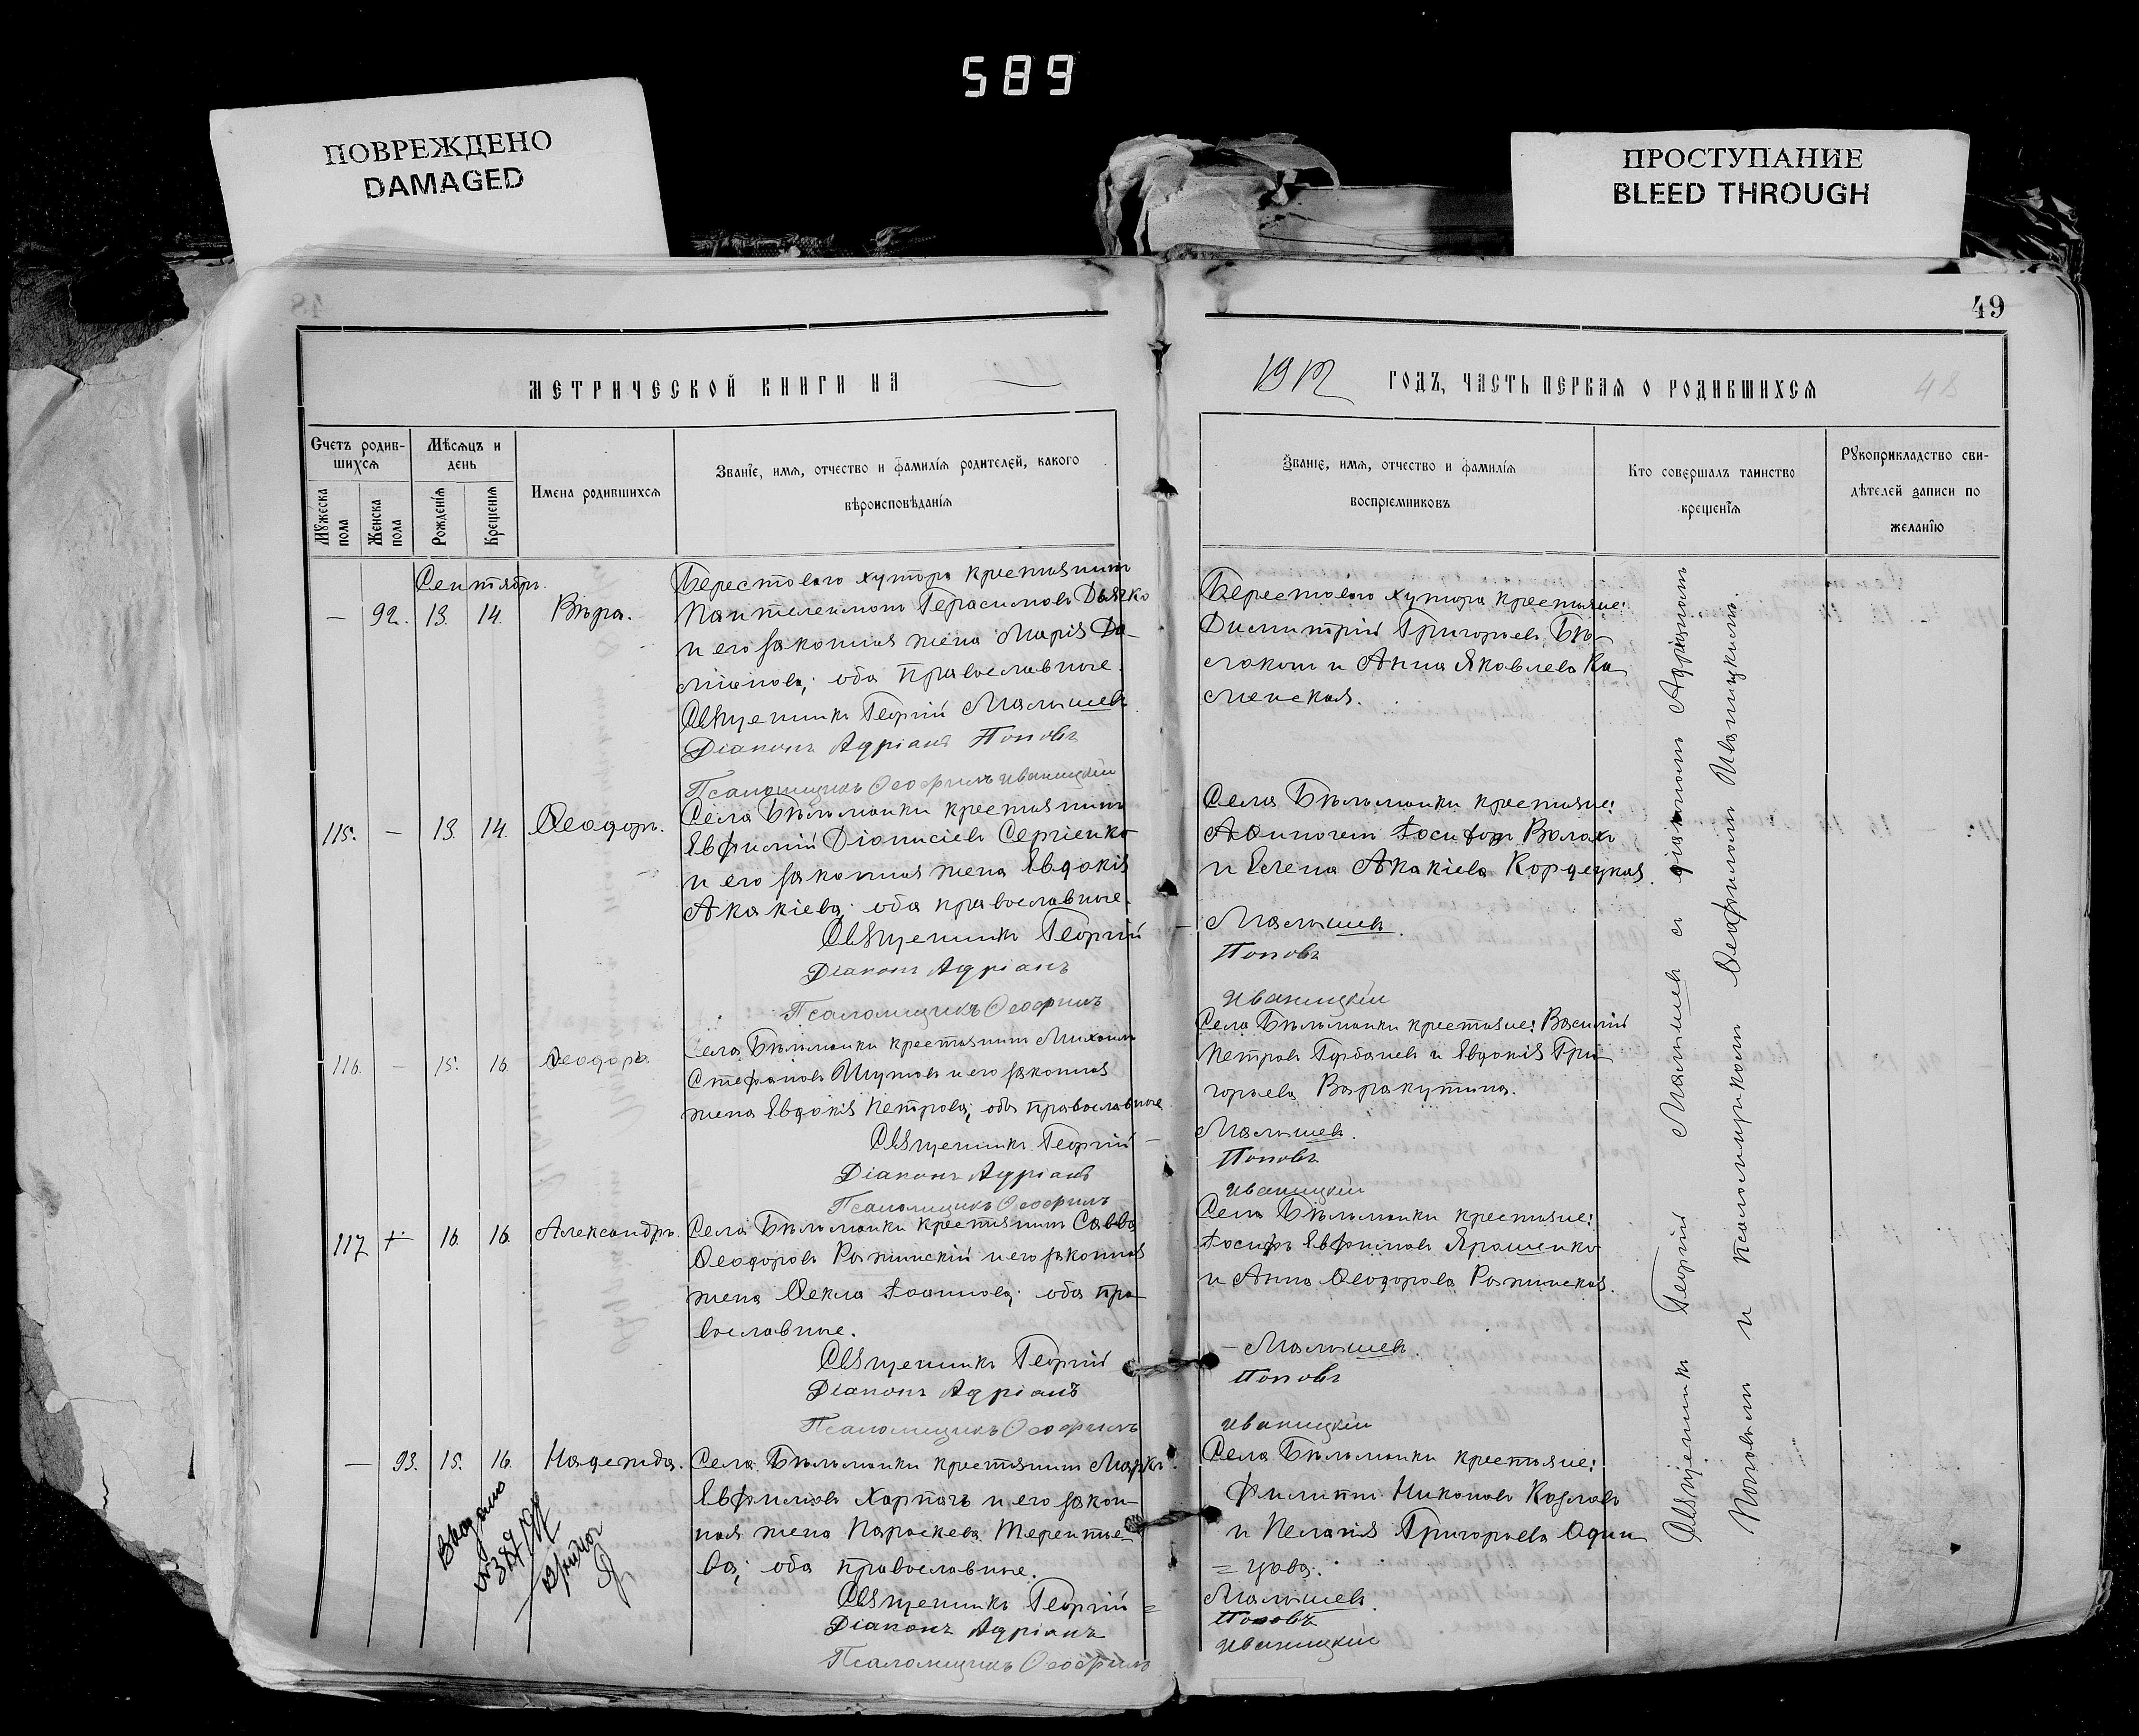 589
ПОВРЕЖДЕНО
DAMAGED
ПРОСТУПАНИЕ
BLEED THROUGH
49
МЕТРИЧЕСКОЙ КНИГИ НА
1912 ГОДЪ, ЧАСТЬ ПЕРВАЯ О РОДИВШИХСЯ
48
Счетъ родив-
шихся
Мужеска пола
Женска пола
Мѣсяцъ и
день
Рожденія
Крещенія
Имена родившихся
Званіе, имя, отчество и фамилія родителей, какого
вѣроисповѣданія
Званіе, имя, отчество и фамилія
воспріемниковъ
Кто совершалъ таинство
крещенія
Рукоприкладство сви-
дѣтелей записи по
желанію
Сентябрь.
— 92. 13. 14. Вѣра.
Берестоваго хутора крестьянинъ
Пантелеимонъ Герасимовъ Дьячко
и его законная жена Марія Да-
міанова; оба православные.
Священникъ Георгій Малышевъ
Діаконъ Адріанъ Поповъ
Псаломщикъ Ѳеофилъ Иваницкій
Берестоваго хутора крестьяне:
Димитрій Григорьевъ Бѣ-
локонь и Анна Яковлева Ка-
менская.
115. — 13. 14. Ѳеодоръ.
Села Бѣльманки крестьянинъ
Евфимій Діонисіевъ Сергіенко
и его законная жена Евдокія
Акакіева; оба православные.
Священникъ Георгій
Діаконъ Адріанъ
Псаломщикъ Ѳеофилъ
Села Бѣльманки крестьяне:
Аѳиногенъ Іосифовъ Волохъ
и Елена Акакіева Кордецкая.
Малышевъ.
Поповъ
Иваницкій
116. — 15. 16. Ѳеодоръ.
Села Бѣльманки крестьянинъ Михаилъ
Стефановъ Шутовъ и его законная
жена Евдокія Петрова; оба православные
Священникъ Георгій —
Діаконъ Адріанъ
Псаломщикъ Ѳеофилъ
Села Бѣльманки крестьяне: Василій
Петровъ Горбачевъ и Евдокія Гри-
горьева Варакутина.
Малышевъ.
Поповъ
Иваницкій
117 + 16. 16. Александръ.
Села Бѣльманки крестьянинъ Савва
Ѳеодоровъ Рожинскій и его законная
жена Ѳекла Іоаннова; оба пра-
вославные.
Священникъ Георгій
Діаконъ Адріанъ
Псаломщикъ Ѳеофилъ
Села Бѣльманки крестьяне:
Іосифъ Евфимовъ Ярошенко
и Анна Ѳеодорова Рожинская.
— Малышевъ.
Поповъ
Иваницкій
— 93. 15. 16. Надежда.
Села Бѣльманки крестьянинъ Марко
Евфимовъ Харпачъ и его закон-
ная жена Параскева Терентье-
ва; оба православные.
Священникъ Георгій =
Діаконъ Адріанъ
Псаломщикъ Ѳеофилъ
Села Бѣльманки крестьяне:
Филиппъ Никоновъ Козловъ
и Пелагія Григорьева Один-
= цова.
Малышевъ.
Поповъ
Иваницкій
Священникъ Георгій Малышевъ съ діакономъ Адріаномъ
Поповымъ и псаломщикомъ Ѳеофиломъ Иваницкимъ.